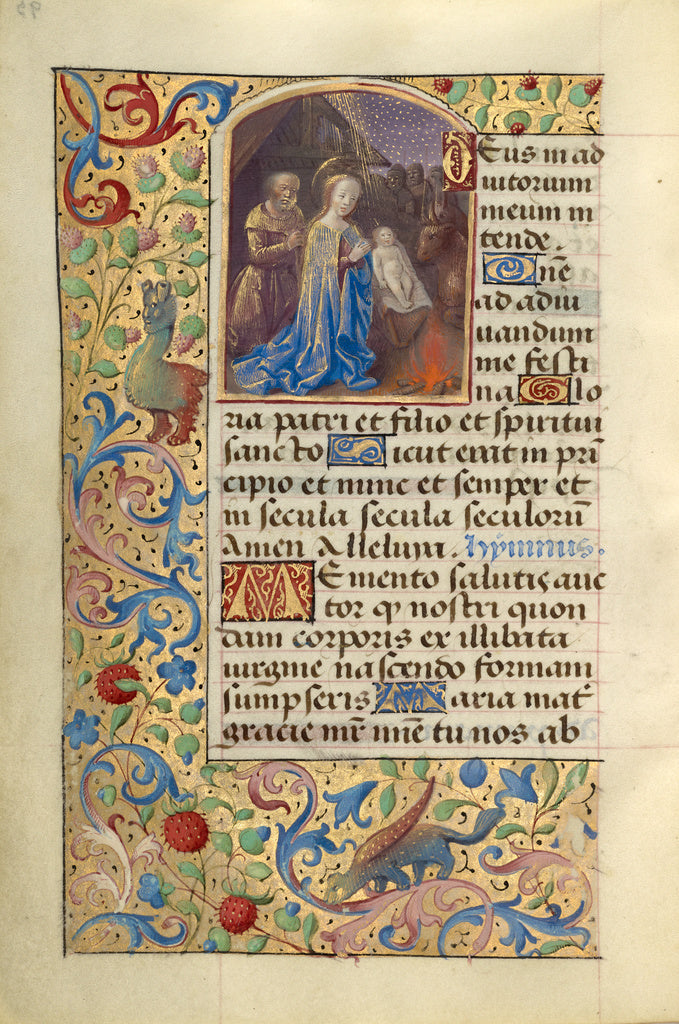 Deus in ad
iutorium
meum in
tende.
One
ad adiu
uandum
me festi
na Glo
ria patri et filio et spiritui
sancto Sicut erat in pri
cipio et nunc et semper et
in secula secula seculorū
Amen Alleluya. hymnus.
Memento salutis auc
tor qȝ nostri quon
dam corporis ex illibata
uirgine nascendo formam
sumpseris Maria mat᷑
gracie mr̄ mīe tu nos ab